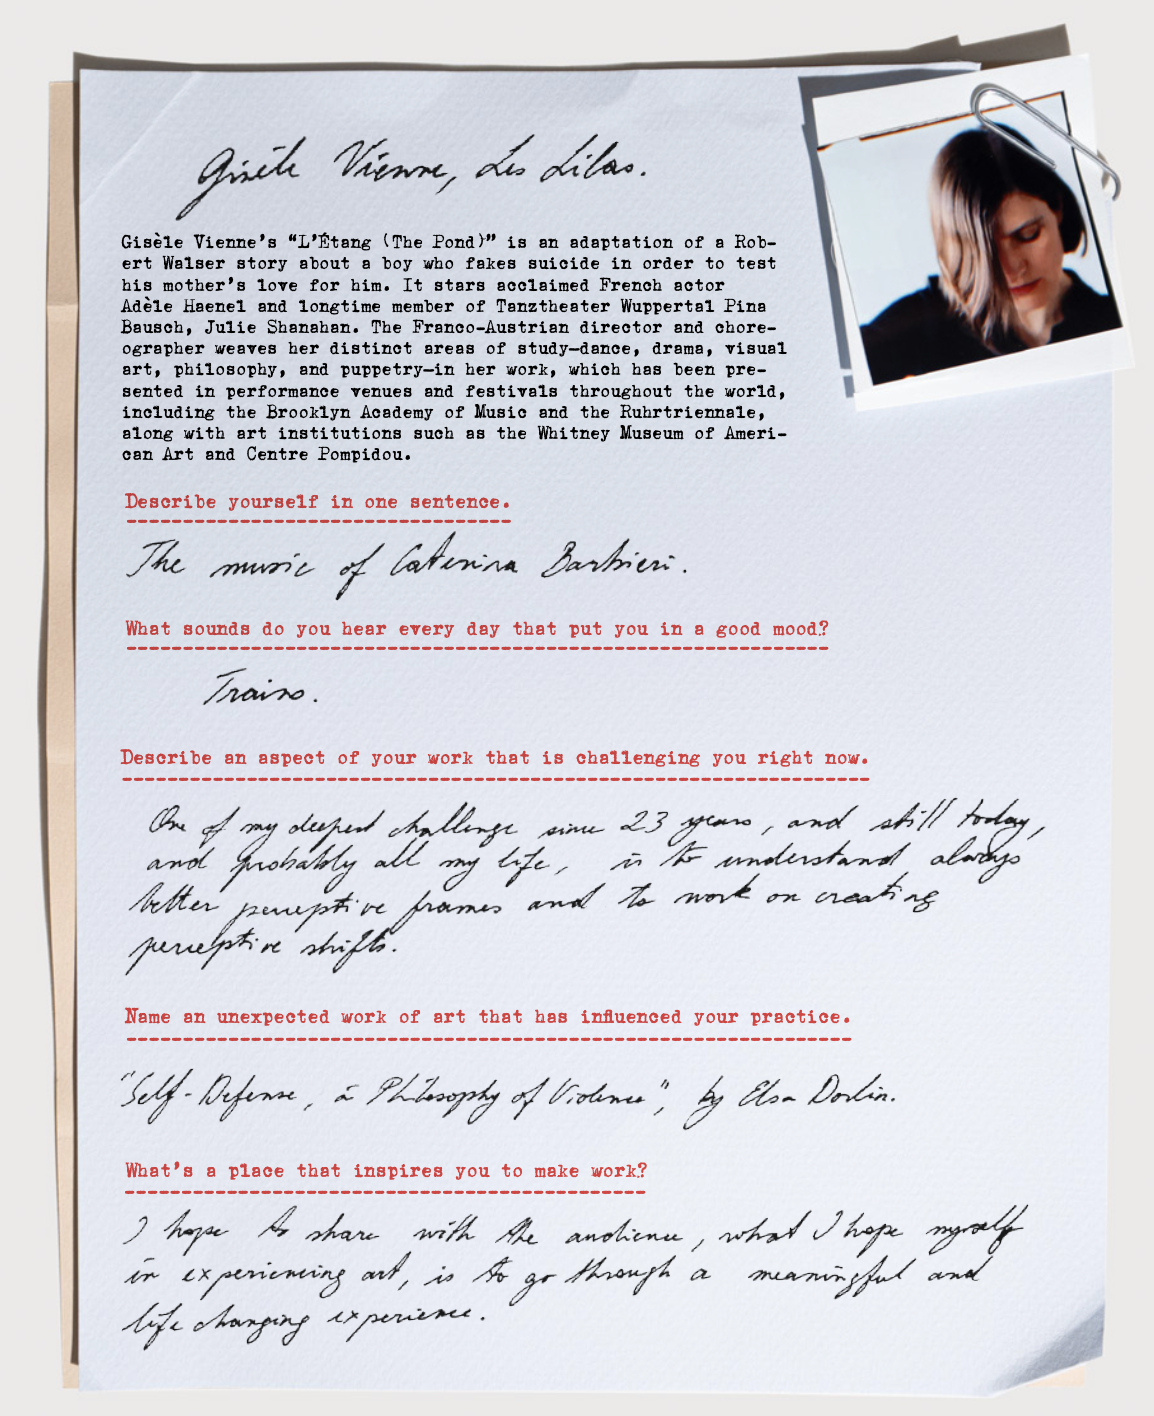 Gisèle Vienne, Les Lilas.
Gisèle Vienne's “L'Étang (The Pond)” is an adaptation of a Rob-
ert Walser story about a boy who fakes suicide in order to test
his mother's love for him. It stars acclaimed French actor
Adèle Haenel and longtime member of Tanztheater Wuppertal Pina
Bausch, Julie Shanahan. The Franco-Austrian director and chore-
ographer weaves her distinct areas of study—dance, drama, visual
art, philosophy, and puppetry—in her work, which has been pre-
sented in performance venues and festivals throughout the world,
including the Brooklyn Academy of Music and the Ruhrtriennale,
along with art institutions such as the Whitney Museum of Ameri-
can Art and Centre Pompidou.
Describe yourself in one sentence.
The music of Caterina Barbieri.
What sounds do you hear every day that put you in a good mood?
Trains.
Describe an aspect of your work that is challenging you right now.
One of my deepest challenge since 23 years, and still today,
and probably all my life, is to understand always
better perceptive frames and to work on creating
perceptive shifts.
Name an unexpected work of art that has influenced your practice.
"Self-Defense, a Philosophy of Violence", by Elsa Dorlin.
What's a place that inspires you to make work?
I hope to share with the audience, what I hope myself
in experiencing art, is to go through a meaningful and
life changing experience.